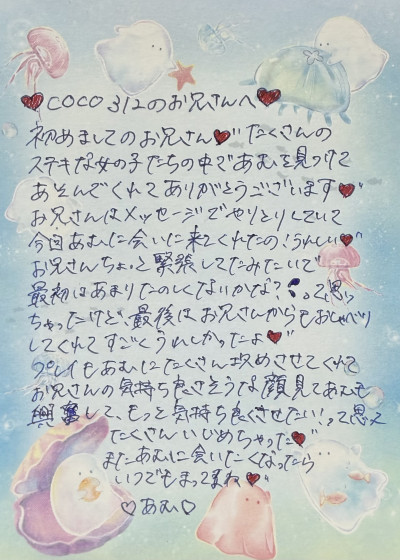 ♥COCO 312のお兄さんへ♥
初めましてのお兄さん♥たくさんの
ステキな女の子たちの中であむを見つけて
あそんでくれてありがとうございます♥
お兄さんはメッセージでやりとりしていて
今回あむに会いに来てくれたの!うれしい♥
お兄さんちょっと緊張してたみたいで
最初はあまりたのしくないかな?って思っ
ちゃったけど、最後はお兄さんからもおしゃべり
してくれてすごくうれしかったよ♥
プレイもあむにたくさん攻めさせてくれて
お兄さんの気持ち良さそうな顔見てあむも
興奮して、もっと気持ち良くさせたい!って思って
たくさんいじめちゃった♥
またあむに会いたくなったら
いつでもまってるね♥
♡あむ♡